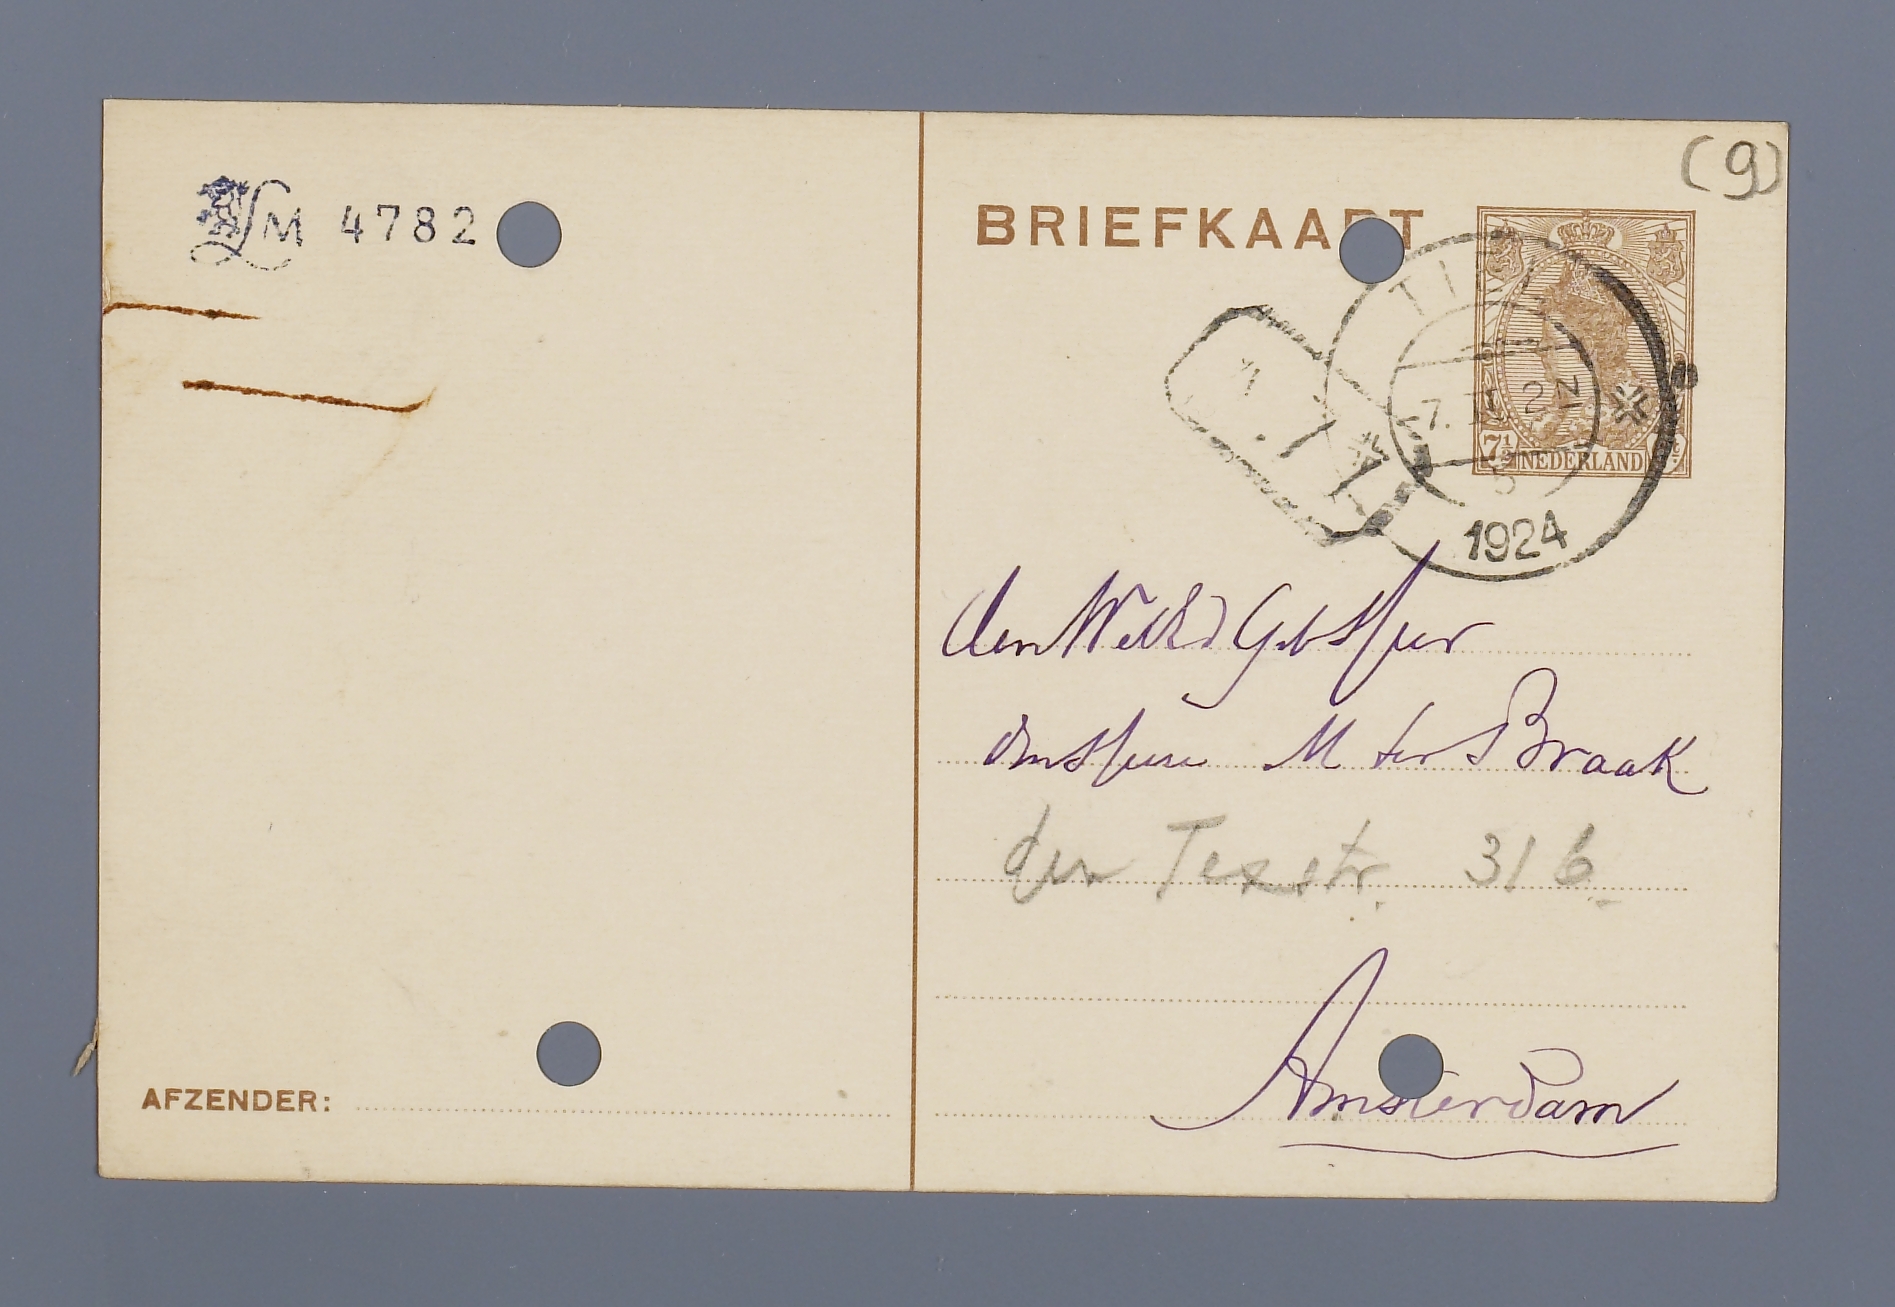 LM 4782
(9)
BRIEFKAART
TI
7. 2
5
1924
7½ NEDERLAND
den WelEd Geb Heer
den Heere M ter Braak
den Texstr. 31 b
Amsterdam
AFZENDER: